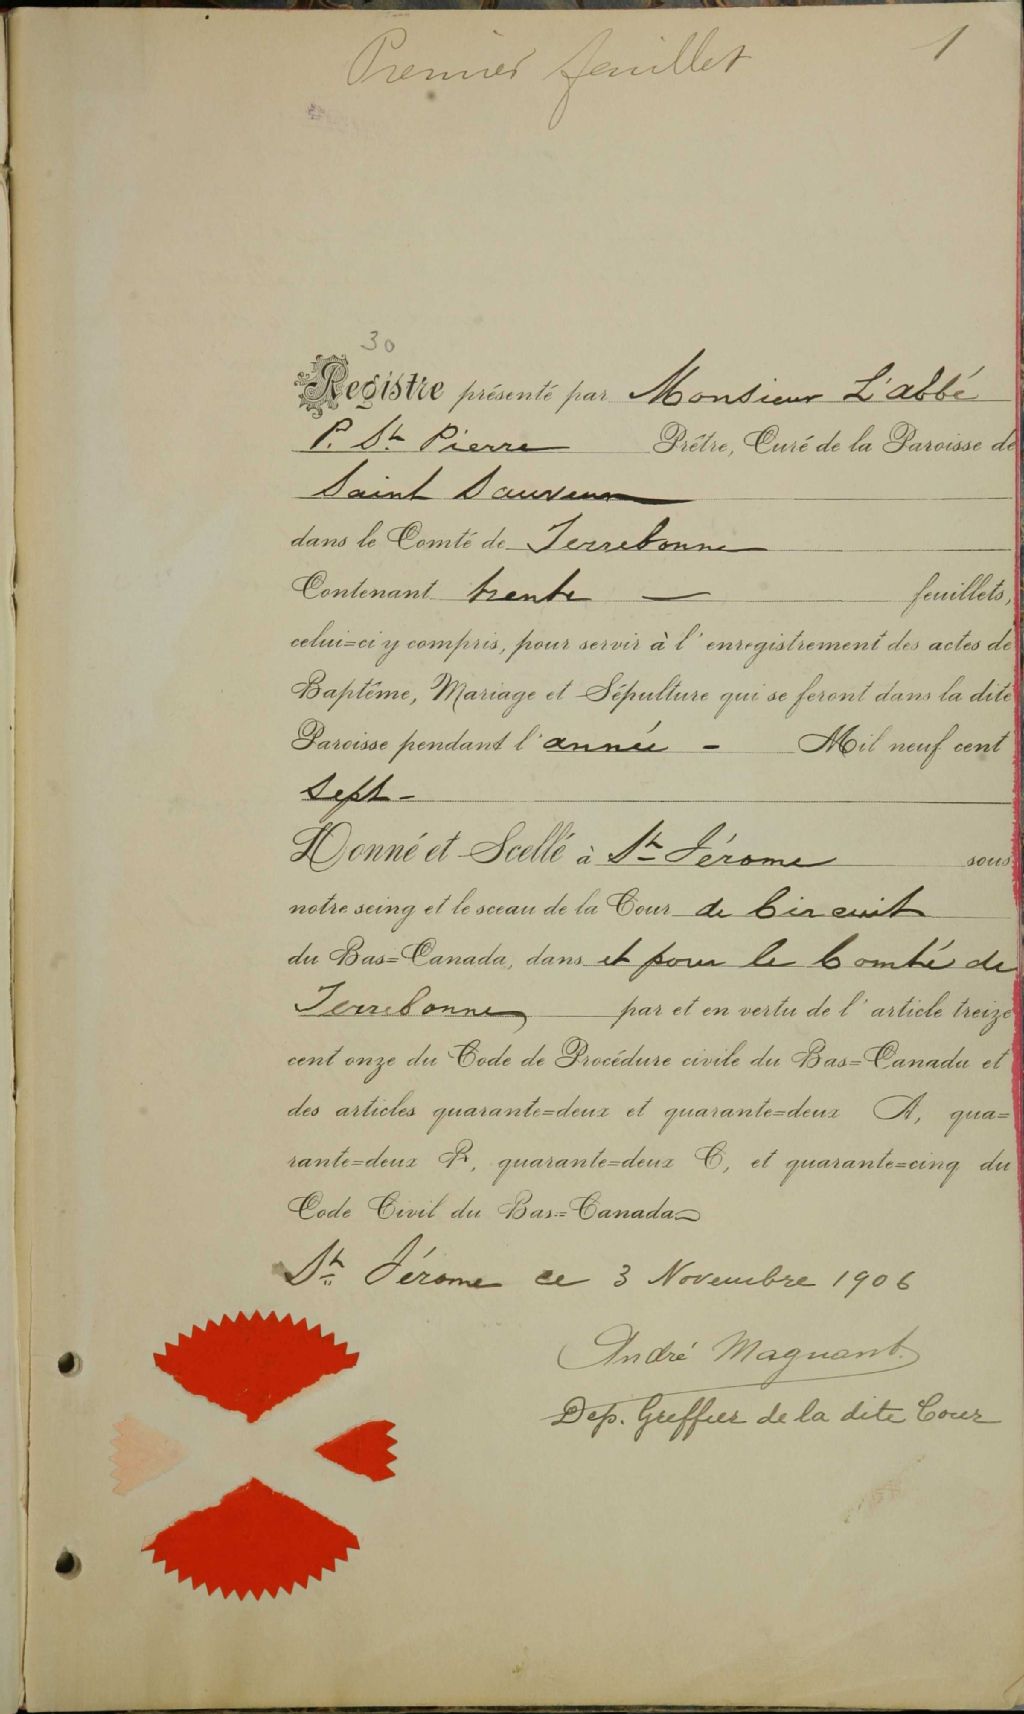 Premier feuillet 1
30
Registre présenté par Monsieur L'abbé
P. St Pierre Prêtre, Curé de la Paroisse de
Saint Sauveur
dans le Comté de Terrebonne
Contenant trente — feuillets,
celui=ci y compris, pour servir à l'enregistrement des actes de
Baptême, Mariage et Sépulture qui se feront dans la dite
Paroisse pendant l'année - Mil neuf cent
Sept -
Donné et Scellé à St Jérome sous
notre seing et le sceau de la Cour de Circuit
du Bas=Canada, dans et pour le Comté de
Terrebonne par et en vertu de l'article treize
cent onze du Code de Procédure civile du Bas=Canada et
des articles quarante=deux et quarante=deux A, qua=
rante=deux B, quarante=deux C, et quarante=cinq du
Code Civil du Bas=Canada
St Jérome ce 3 Novembre 1906
André Magnant
Dep. Greffier de la dite Cour